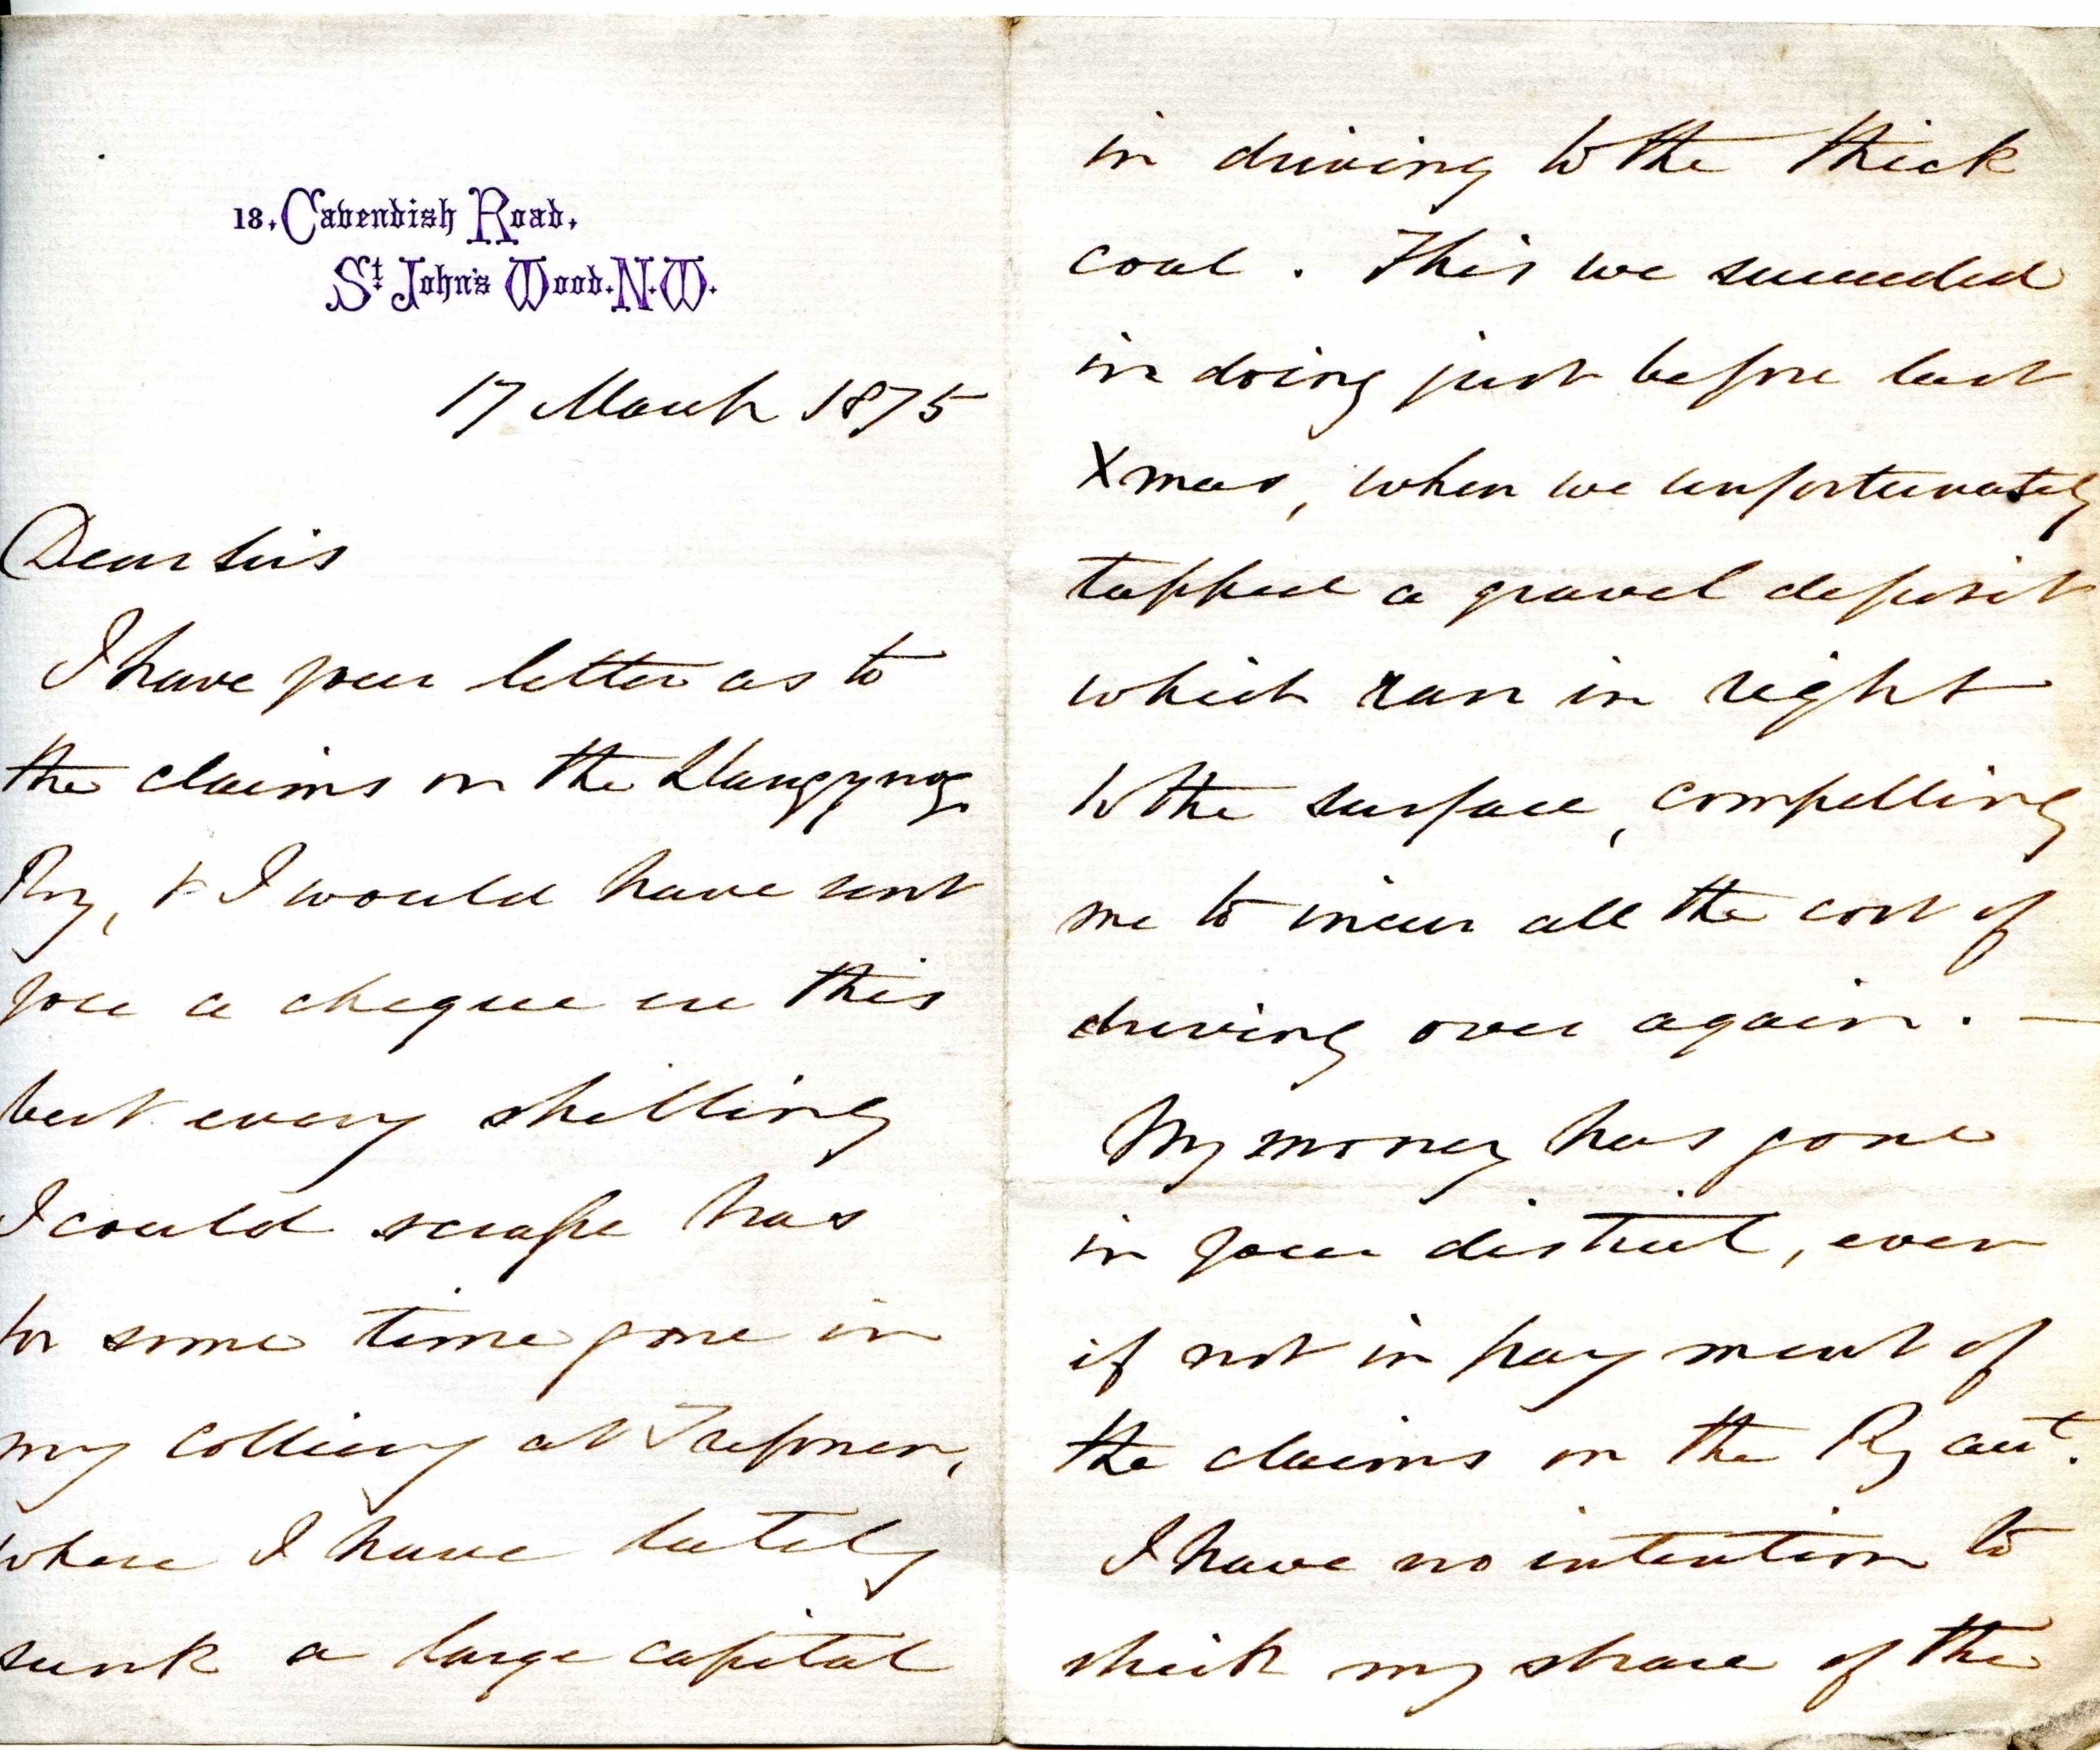 18, Cavendish Road,
St John's Wood. N.W.
17 March 1875
Dear Sirs
I have your letter as to
the claims on the Llangynog
Ry, & I would have sent
you a cheque ere this
but every shilling
I could scrape has
for some time gone in
my colliery at Trefonen,
where I have lately
sunk a large capital
in driving to the thick
coal. This we succeeded
in doing just before last
Xmas, when we unfortunately
tapped a gravel deposit
which ran in right
to the surface, compelling
me to incur all the cost of
driving over again. —
My money has gone
in your district, even
if not in payment of
the claims on the Ry
I have no intention to
shirk my share of the